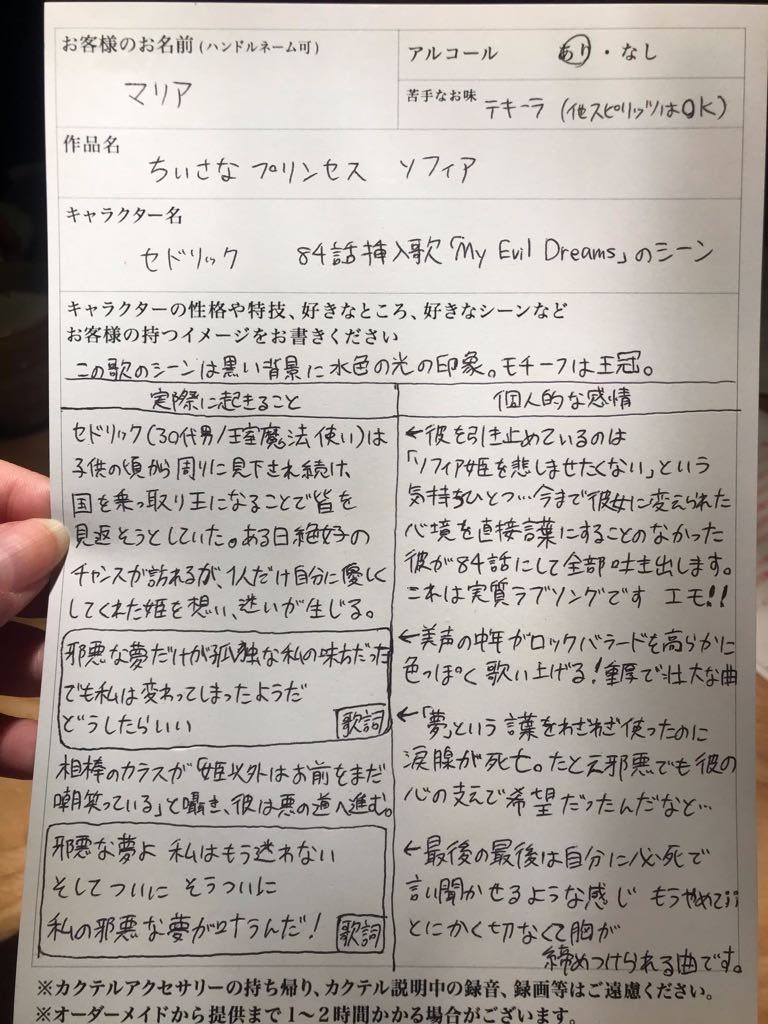 お客様のお名前(ハンドルネーム可)
マリア
アルコール あり・なし
苦手なお味 テキーラ (他スピリッツはOK)
作品名
ちいさな プリンセス ソフィア
キャラクター名
セドリック 84話挿入歌「My Evil Dreams」のシーン
キャラクターの性格や特技、好きなところ、好きなシーンなど
お客様の持つイメージをお書きください
この歌のシーンは黒い背景に水色の光の印象。モチーフは王冠。
実際に起きること
セドリック(30代男/王室魔法使い)は
子供の頃から周りに見下され続け、
国を乗っ取り王になることで皆を
見返そうとしていた。ある日絶好の
チャンスが訪れるが、1人だけ自分に優しく
してくれた姫を想い、迷いが生じる。
邪悪な夢だけが孤独な私の味方だった
でも私は変わってしまったようだ
どうしたらいい
歌詞
相棒のカラスが「姫以外はお前をまだ
嘲笑っている」と囁き、彼は悪の道へ進む。
邪悪な夢よ 私はもう迷わない
そしてついに そうついに
私の邪悪な夢が叶うんだ!
歌詞
個人的な感情
←彼を引き止めているのは
「ソフィア姫を悲しませたくない」という
気持ちひとつ…今まで彼女に変えられた
心境を直接言葉にすることのなかった
彼が84話にして全部吐き出します。
これは実質ラブソングです エモ!!
←美声の中年がロックバラードを高らかに
色っぽく歌い上げる!重厚で壮大な曲
←「夢」という言葉をわざわざ使ったのに
涙腺が死亡。たとえ邪悪でも彼の
心の支えで希望だったんだなと…
←最後の最後は自分に必死で
言い聞かせるような感じ もうやめて
とにかく切なくて胸が
締めつけられる曲です。
※カクテルアクセサリーの持ち帰り、カクテル説明中の録音、録画等はご遠慮ください。
※オーダーメイドから提供まで1〜2時間かかる場合がございます。